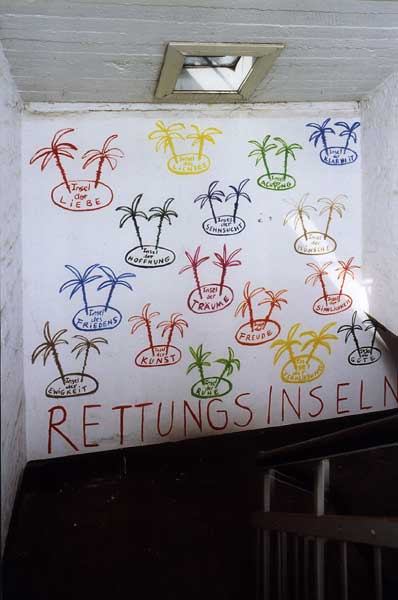 Insel
der
LIEBE
Insel
des
LICHTES
Insel
der
ACHTUNG
Insel
der
KLARHEIT
Insel
der
HOFFNUNG
Insel
der
SEHNSUCHT
Insel
der
WÜNSCHE
Insel
des
FRIEDENS
Insel
der
TRÄUME
Insel
der
FREUDE
Insel
der
SINNLICHKEIT
Insel
der
EWIGKEIT
Insel
der
KUNST
Insel
der
RUHE
Insel
der
Insel
der
GÜTE
RETTUNGSINSELN